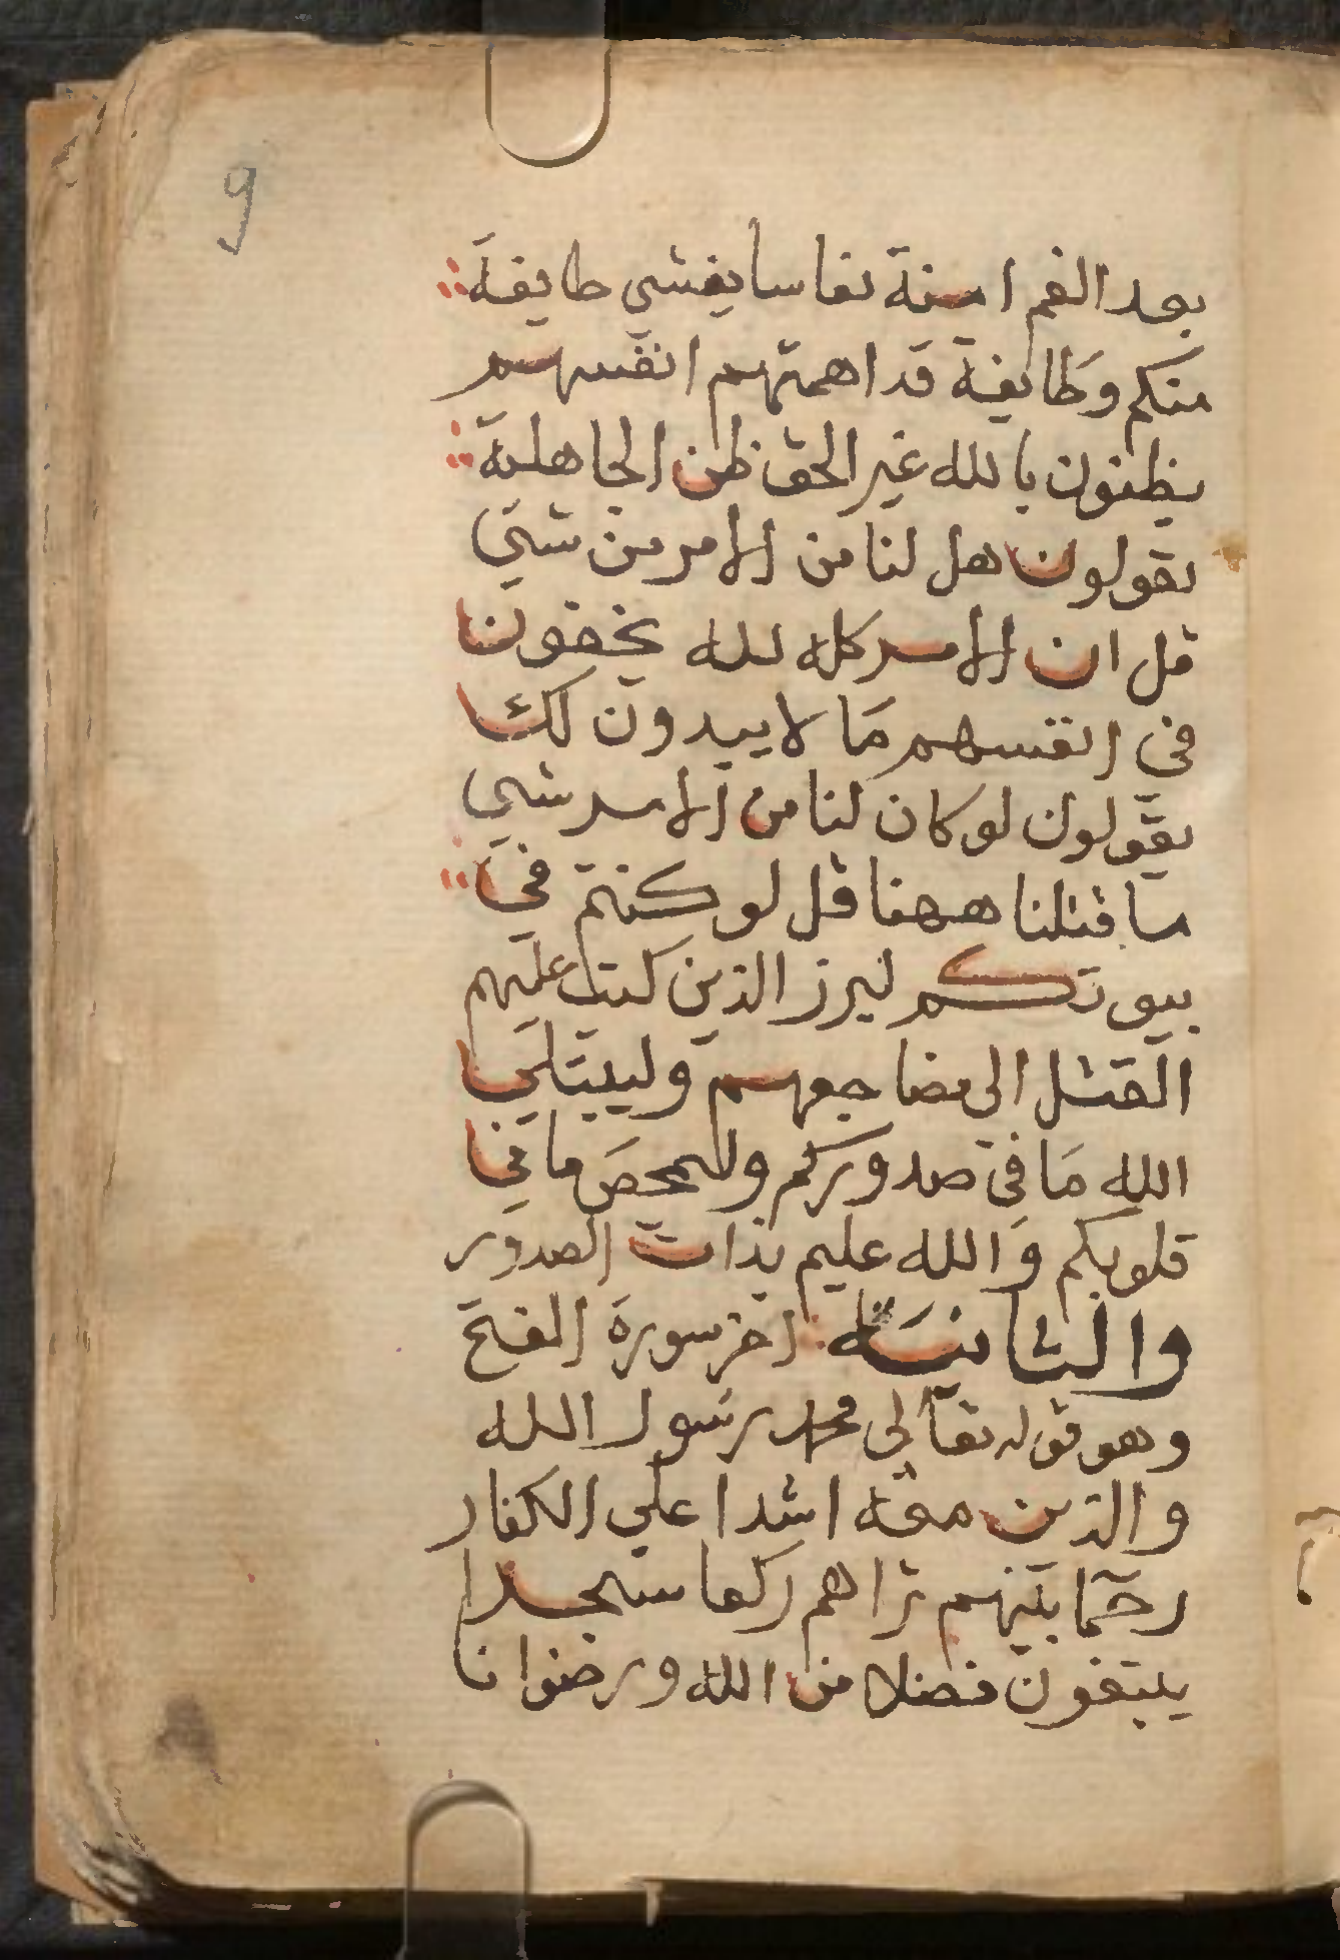 9
بعد الغم امنة نعاسا يغشي طايفة
منكم وطايفة قد اهمتهم انفسهم
يظنون بالله غير الحق ظن الجاهلية
يقولون هل لنا من الامر من شي
قل ان الامر كله لله يخفون
في انفسهم ما لا يبدون لك
يقولون لو كان لنا من الامر شي
ما قتلنا ههنا قل لو كنتم في
بيوتكم لبرز الذين كتب عليهم
القتل الى مضاجعهم وليبتلي
الله ما في صدوركم وليمحص ما في
قلوبكم والله عليم بذات الصدور
والثانية اخر سورة الفتح
وهو قوله تعالى محمد رسول الله
والذين معه اشدا علي الكفار
رحما بينهم تراهم ركعا سجدا
يبتغون فضلا من الله ورضوانا